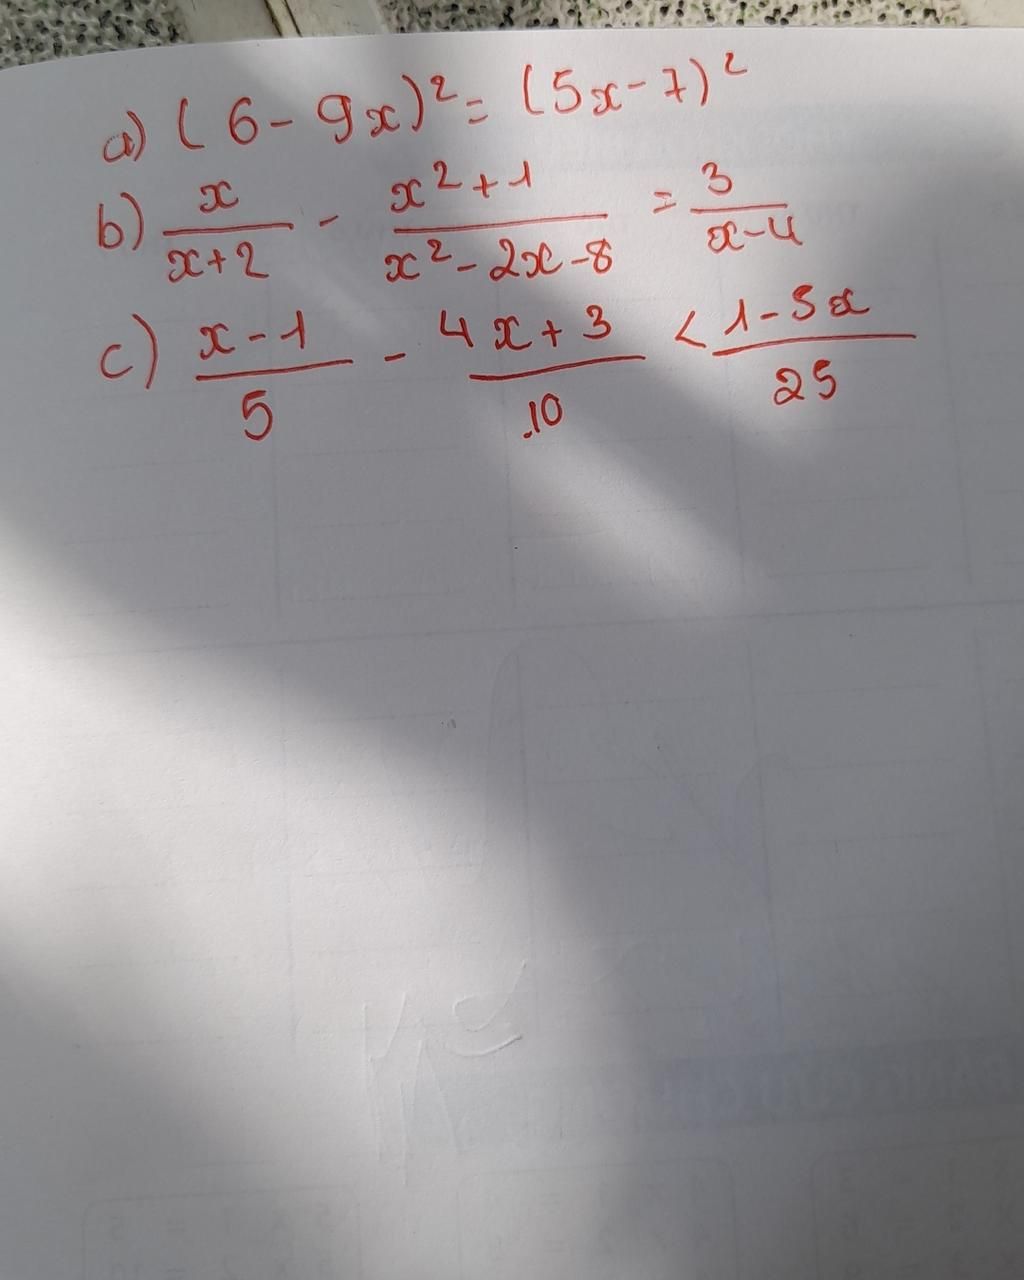 a) (6-9x)²= (5x-7)²
b) x/(x+2) - (x²+1)/(x²-2x-8) = 3/(x-4)
c) (x-1)/5 - (4x+3)/10 < (1-5x)/25